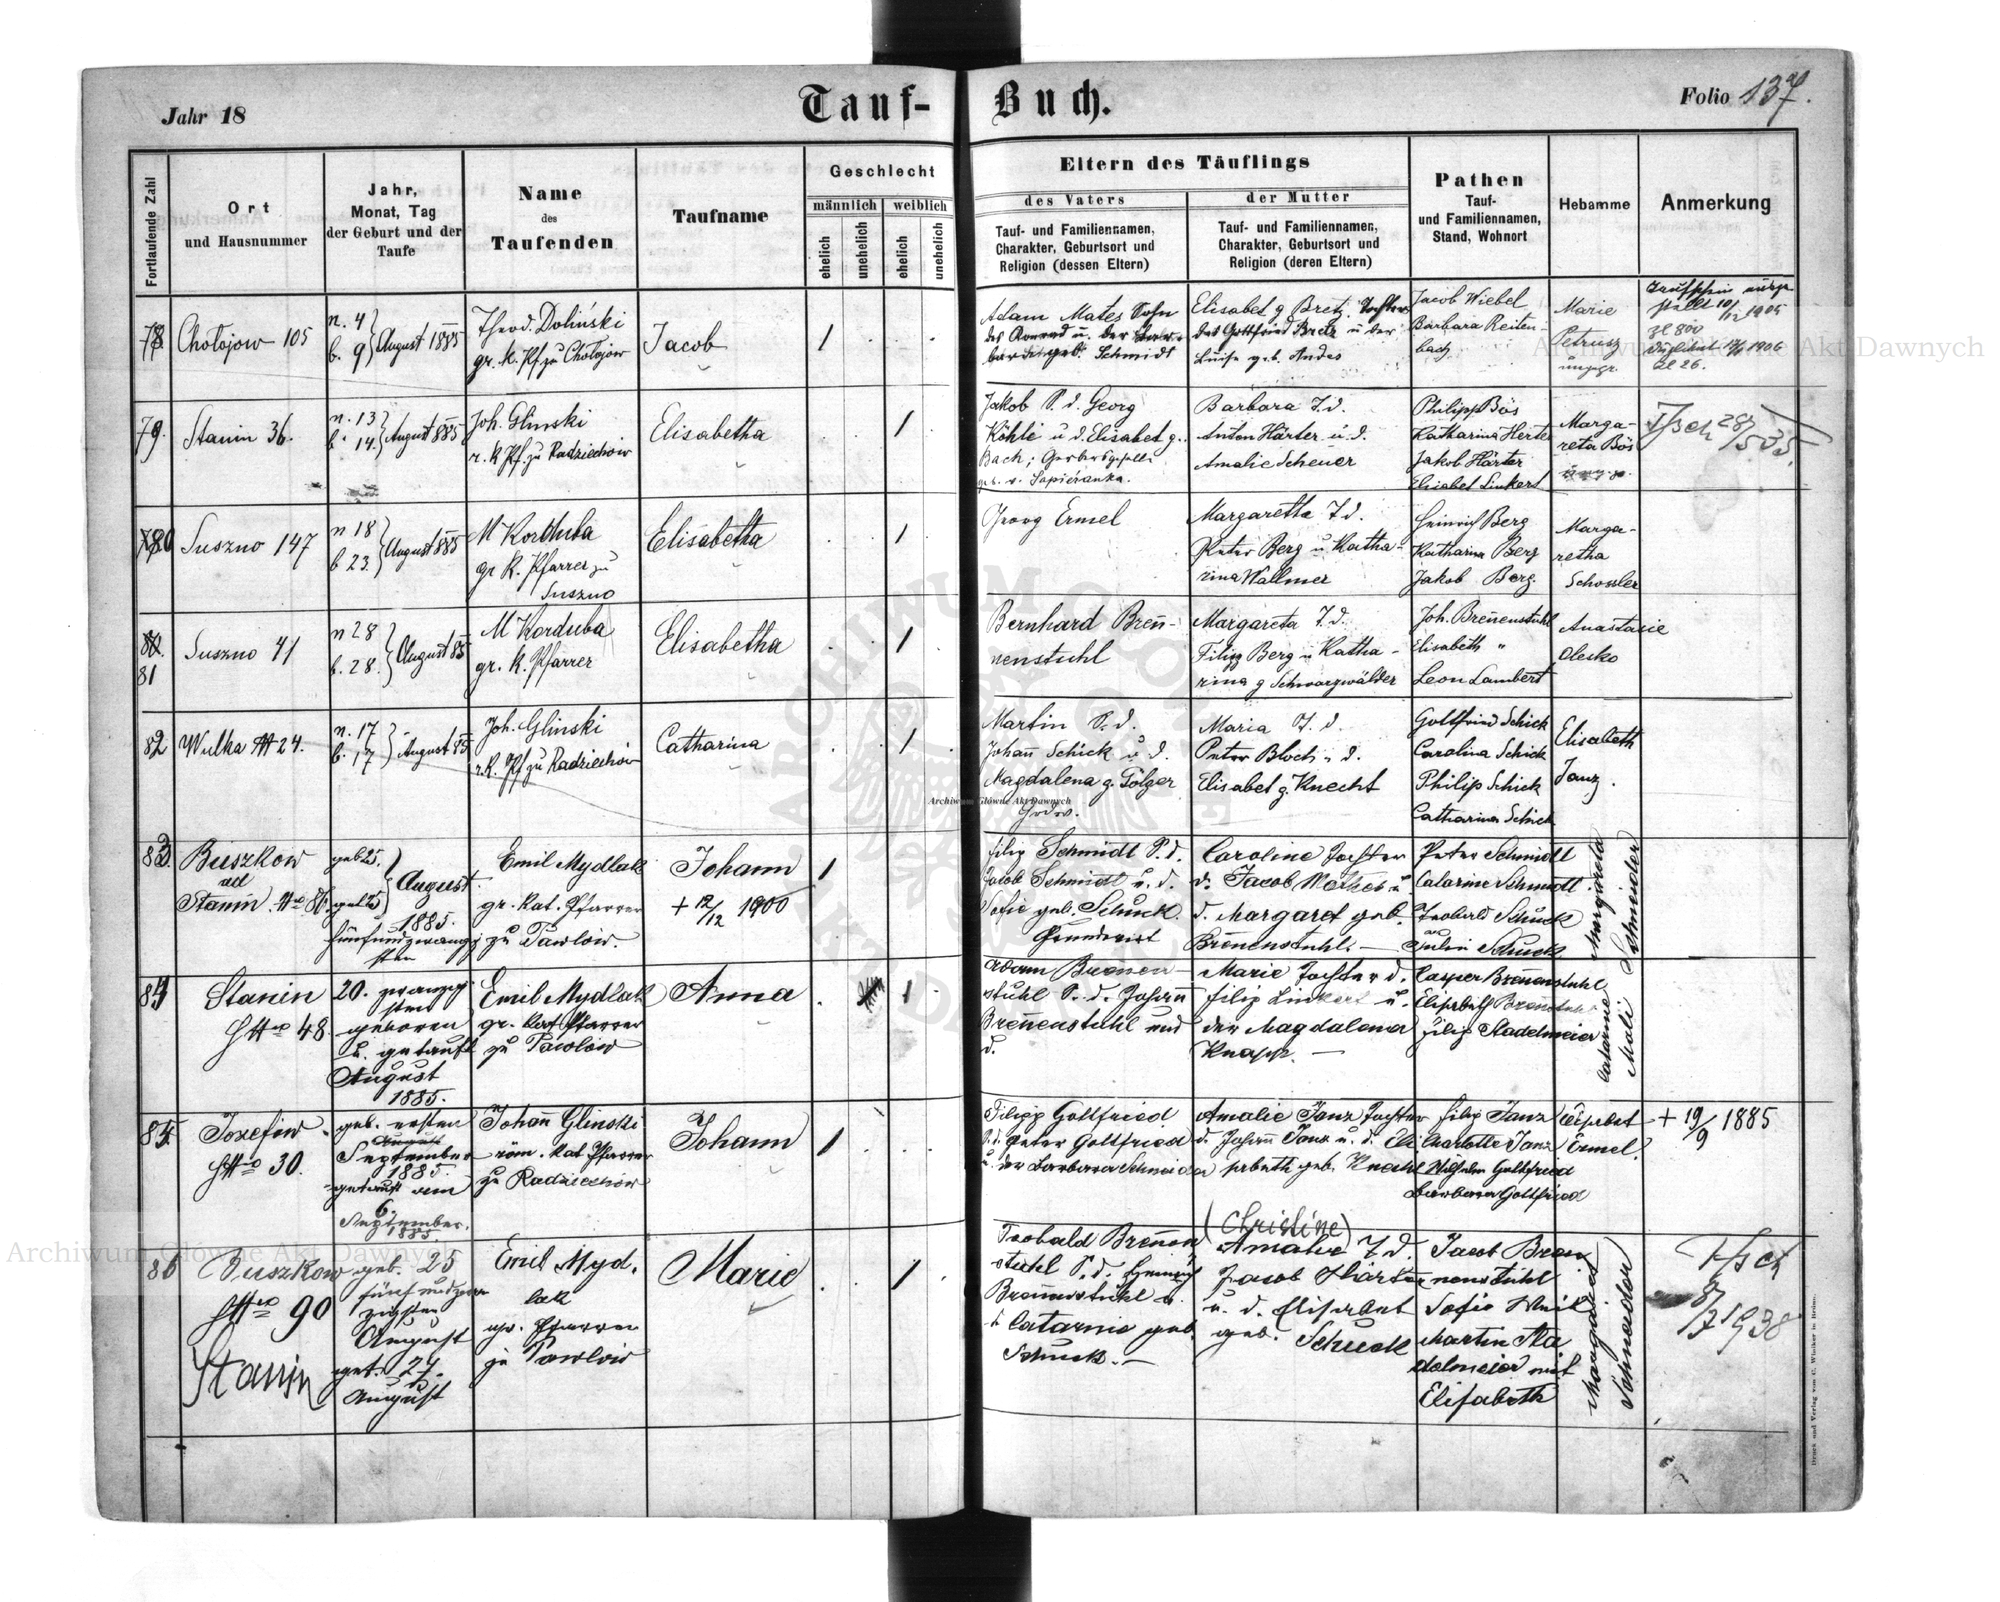 Jahr 18
Tauf-Buch.
Folio 137.
Fortlaufende Zahl
Ort
und Hausnummer
Jahr,
Monat, Tag
der Geburt und der
Taufe
Name
des
Taufenden
Taufname
Geschlecht
männlich
weiblich
ehelich
unehelich
ehelich
unehelich
Eltern des Täuflings
des Vaters
Tauf- und Familiennamen,
Charakter, Geburtsort und
Religion (dessen Eltern)
der Mutter
Tauf- und Familiennamen,
Charakter, Geburtsort und
Religion (deren Eltern)
Pathen
Tauf-
und Familiennamen,
Stand, Wohnort
Hebamme
Anmerkung
78
Chołojow 105
n. 4
b. 9
August 1885
Theod. Doliński
gr. k. Pf. zu Chołojow
Jacob
1
Adam Mates Sohn
des Konrad u. der Bar-
bara geb. Schmidt
Elisabet g Bretz Tochter
des Gottfried Bretz u der
Luise geb. Andes
Jacob Wiebel
Barbara Reiten-
bach
Marie
Petrusz
ungepr.
Taufschein ausge-
stellt 10/12 1905
Zl 800
Duplikat 1906
Zl 26.
79.
Stanin 36.
n. 13
b. 14.
August 885
Joh. Glinski
r. k Pf. zu Radziechow
Elisabetha
1
Jakob S. d. Georg
Köhle u d. Elisabet g.
Bach; Gerbergeselle
geb. v. Sapieżanka.
Barbara T. d.
Anton Härter u. d.
Amalie Scheuer
Philipp Bös
Katharina Herter
Jakob Härter
Elisabet Linkert
Marga-
reta Bös
ungepr.
Tfsch 28/5 35.
80
Suszno 147
n 18
b 23.
August 885
M Korduba
gr k. Pfarrer zu
Suszno
Elisabetha
1
Georg Ermel
Margaretha T d.
Peter Berg u Katha-
rina Wallmer
Heinrich Berg
Katharina Berg
Jakob Berg.
Marga-
retha
Schossler
80.
81
Suszno 41
n 28
b. 28.
August 85
M Korduba
gr. k. Pfarrer
Elisabetha
1
Bernhard Breñ-
nenstuhl
Margareta T. d.
Filipp Berg u Katha-
rina g Schwarzwälder
Joh. Breñenstuhl
Elisabeth "
Leon Lambert
Anastasie
Olesko
82
Wulka № 24.
n. 17
b. 17
August 85
Joh. Glinski
r. k. Pf zu Radziechow
Catharina
1
Martin S. d.
Johañ Schick u d.
Magdalena g. Gölger
Grdw.
Maria T. d.
Peter Bloch u d.
Elisabet g. Knecht
Gottfried Schick
Carolina Schick
Philip Schick
Catharina Schick
Elisabeth
Janz.
83
Buszkow
ad
Stanin № 86
geb 25.
get 25
August
1885.
fünfundzwanzig
sten
Emil Mydlak
gr. kat. Pfarrer
zu Pawlow.
Johann
+ 12/12 1900
1
Filip Schmidt S. d.
Jacob Schmidt u. d.
Sofie geb. Schuck.
Grundwirt
Caroline Tochter
d. Jacob u
d. Margaret geb.
Breñenstuhl. —
Peter Schmidt
Catarine Schmidt
Teobald Schuck
Julia Schuck
Margareta
Schneider
84
Stanin
H№ 48.
20. zwanzig
sten
geboren
u. getauft
August
1885.
Emil Mydlak
gr. kat Pfarrer
zu Pawlow
Anna
1
Adam Breñen-
stuhl S. d. Johañ
Breñenstuhl und
d.
Marie Tochter d.
Filip Linkert u.
der Magdalena
Knapp. —
Casper Breñenstuhl
Elisabeth Breñstuhl
Filip Stadelmeier
Catarine
Mali
85
Jozefow
H№ 30.
geb. ersten
August
September
1885.
getauft am
6.
September.
1885.
Johañ Glinski
röm. kat Pfarrer
zu Radziechow
Johann
1
Filipp Gottfried
S. d. Peter Gottfried
u. der Barbara Schneider
Amalie Janz Tochter
d. Johañ Janz u. d. Eli
sabeth geb. Knecht
Filip Janz
Charlotte Janz
Wilhelm Gottfried
Barbara Gottfried
Elisabet
Ermel.
+ 19/9 1885
86
Buszkow
H№ 90
Stanin
geb. 25
fünf und zwan
zigsten
August
get. 27.
August
Emil Myd.
lak
gr. Pfarrer
zu Pawlow
Marie
1
Teobald Breñen
stuhl S. d. Heinrich
Breñenstuhl u.
d Catarnie geb.
Schuck. —
(Christine)
Amalie T d.
Jacob Härter
u. d. Elisabet
geb. Schuck
Jacob Breñ
nenstuhl
Sofie Weil
Martin Sta
delmeier mit
Elisabeth
Margareta
Schneider
Tfsch
8/7 1938
Druck und Verlag von C. Winiker in Brünn.
Archiwum Główne Akt Dawnych
Archiwum Główne Akt Dawnych
Archiwum Główne Akt Dawnych
ARCHIWUM GŁÓWNE AKT DAWNYCH